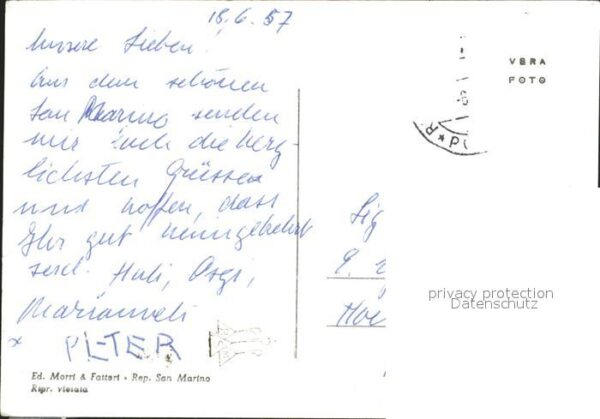 18.6.57
Unsere Lieben!
Aus dem schönen
San Marino senden
wir Euch die herz-
lichsten Grüssen
und hoffen, dass
Ihr gut heimgekehrt
seid. Huli,
Marianneli
PETER
Ed. Morri & Fattori - Rep. San Marino
Ripr. vietata
VERA
FOTO
Sig
privacy protection
Datenschutz